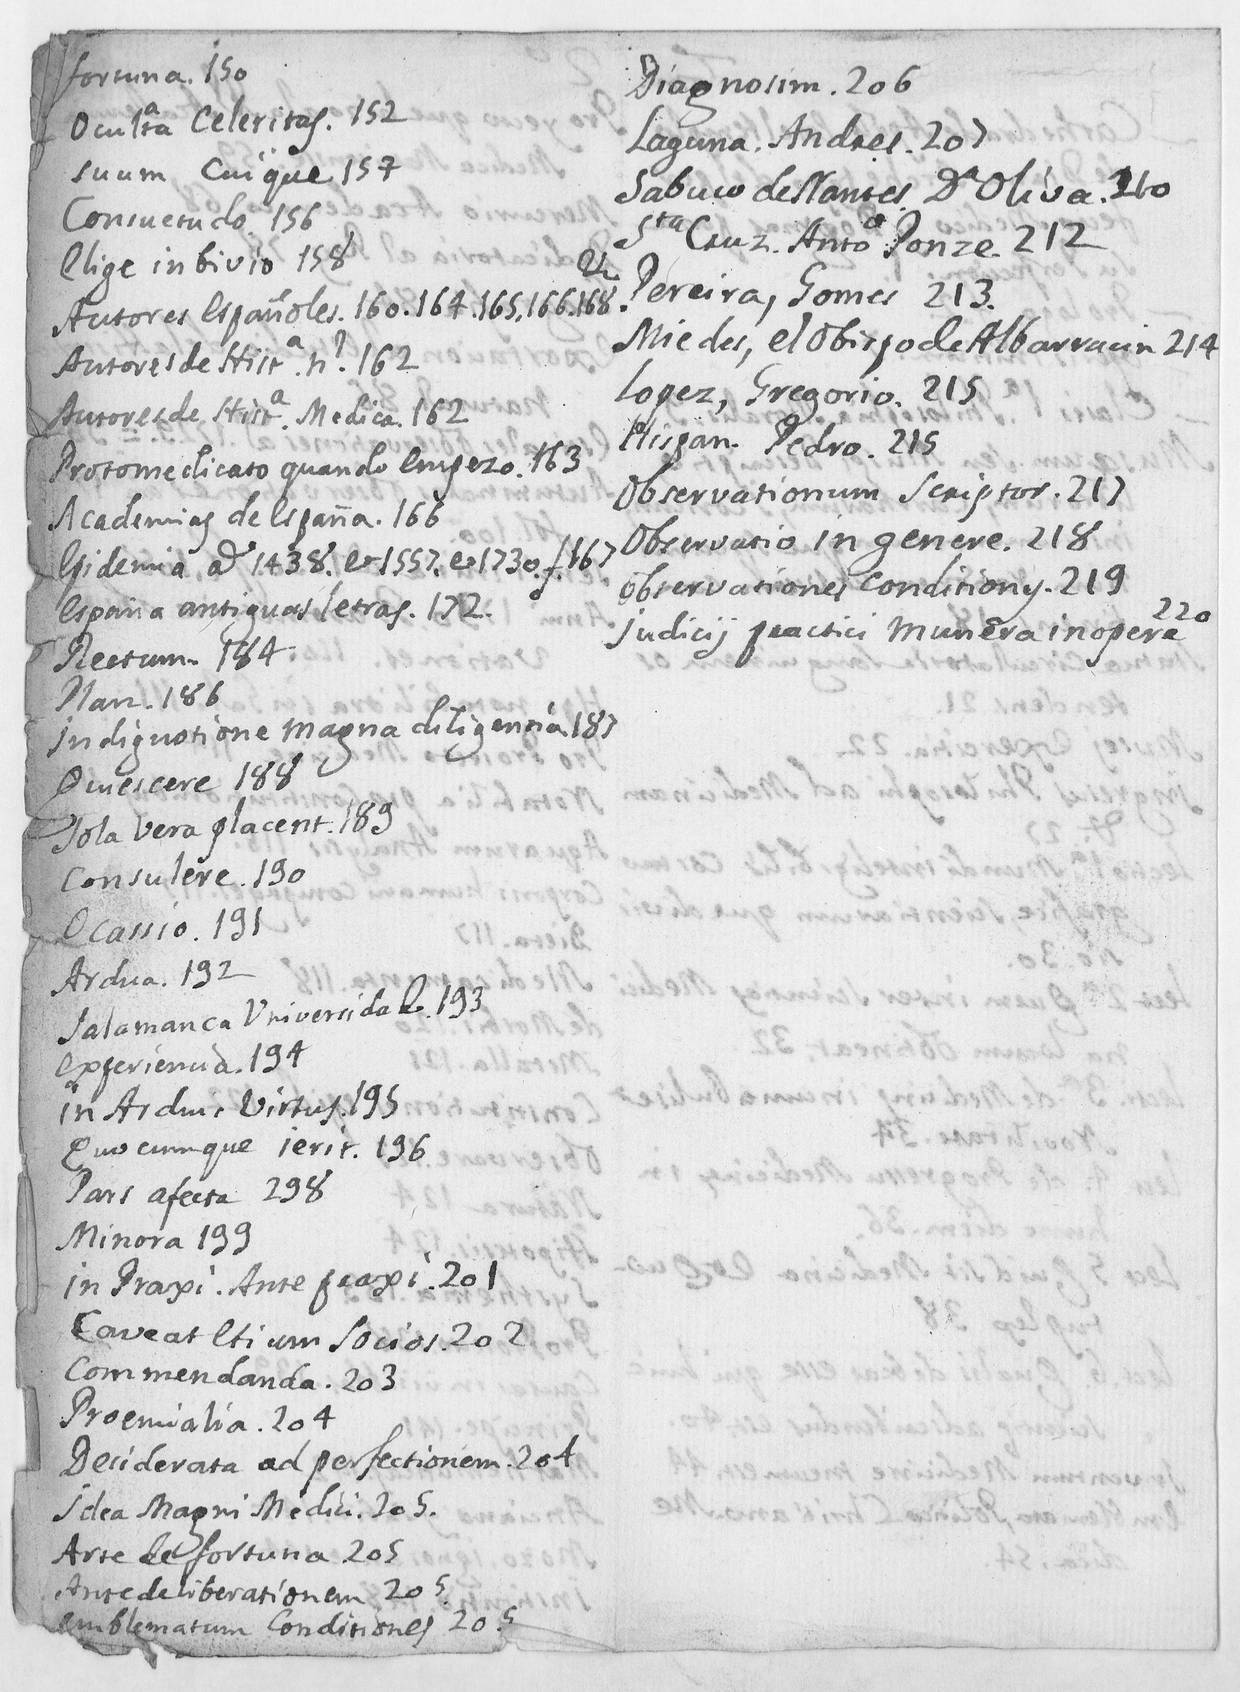 fortuna. 150
Ocultª Celeritas. 152
suum Cuique 157
Consuetudo. 156
Elige in bivio 158
Autores Españoles. 160. 164. 165. 166. 168.
Autores de Histª. n?. 162
Autores de Histª. Medica. 162
Protomedicato quando empezo. 163
Academias de España. 166
Epidemia aº 1438. et 1557. et 1730. f. 167
España antiguas letras. 172.
Rectum. 184
Plan. 186
in dignotione magna diligentia 187
Quiescere 188
Sola vera placent. 189
Consulere. 190
Ocassio. 191
Ardua. 192
Salamanca Universidad. 193
experiencia. 194
in Arduis Virtus. 195
Quocumque ierit. 196
Pars afecta 298
Minora 199
in Praxi. Ante praxi. 201
Caveat Etium Socios. 202
Commendanda. 203
Proemialia. 204
Desiderata ad perfectionem. 204
idea Magni Medici. 205.
Arte de fortuna 205
Ante deliberationem 205.
emblematum Conditiones 205
Diagnosim. 206
Laguna. Andres. 207
Sabuco de Nantes, Dª Oliva. 210
Sta Cruz. Antoº Ponze. 212
Pereira, Gomes 213.
Miedes, el Obispo de Albarracin 214
Lopez, Gregorio. 215
Hispan. Pedro. 215
Observationum Scriptor. 217
Observatio in genere. 218
observationes conditiony. 219
judicij practici munera in opere 220